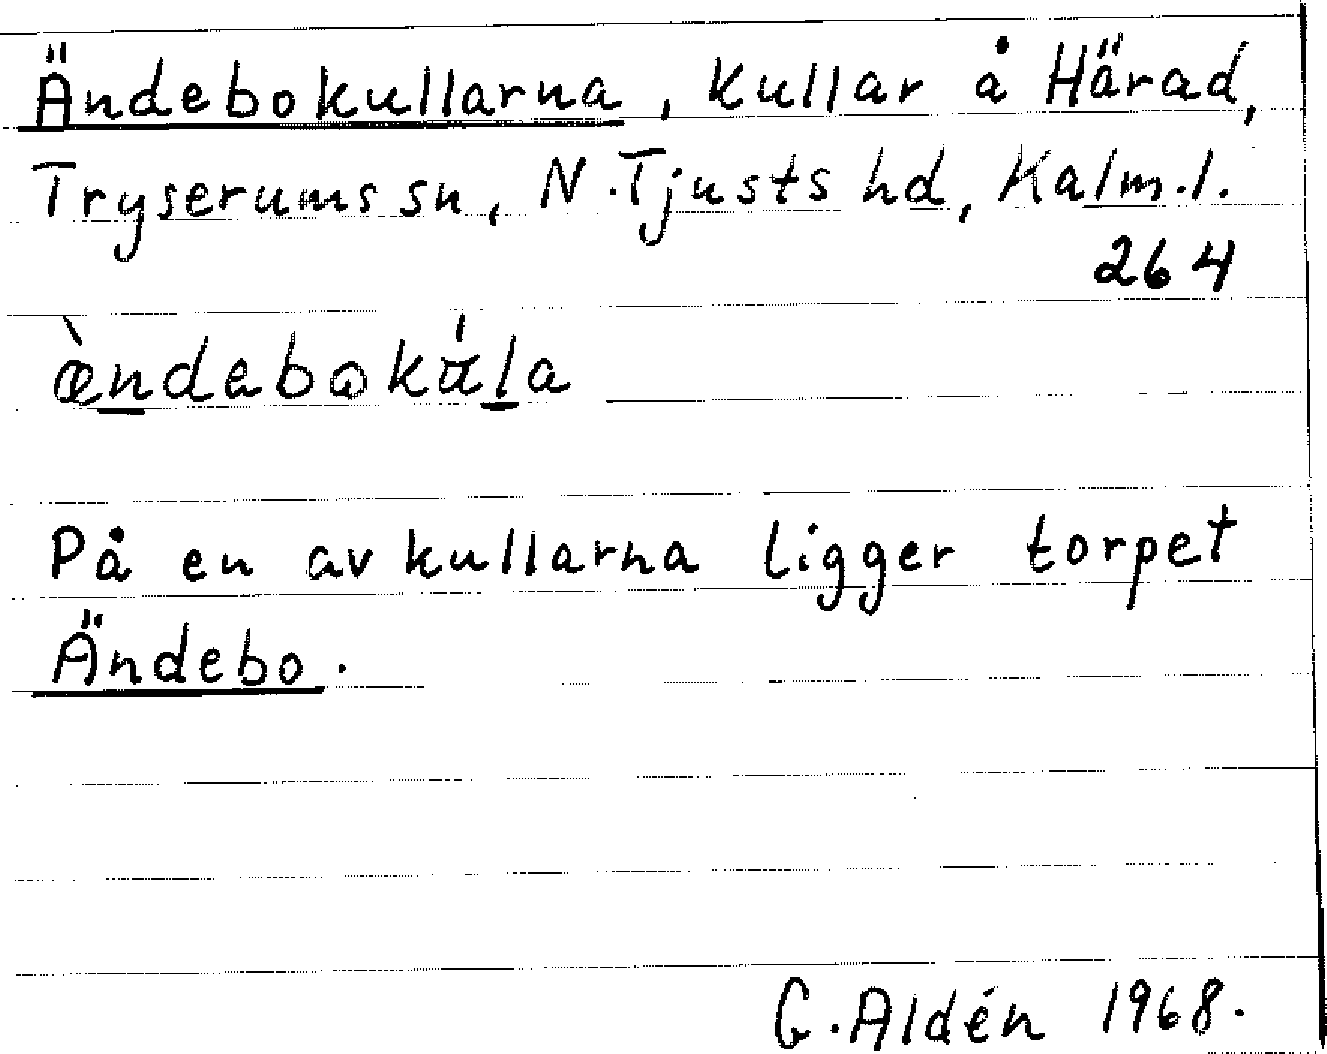 Ändebokullarna, kullar å Härad,
Tryserums sn, N. Tjusts hd, Kalm. l.
264
æ̀ndəbokúla
På en av kullarna ligger torpet
Ändebo.
G. Aldén 1968.